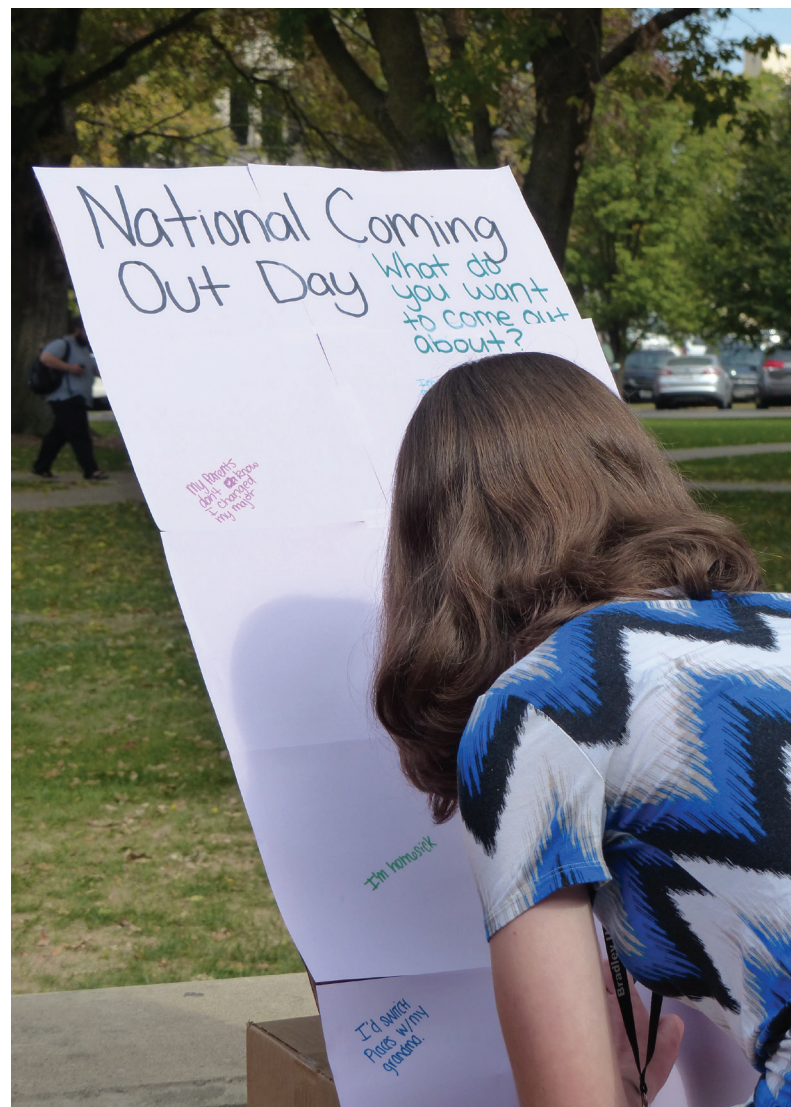 National Coming
Out Day
What do
you want
to come out
about?
My Parents
don't know
I changed
my major
I'm homesick
I'd switch
Places w/my
grandma.
Bradley